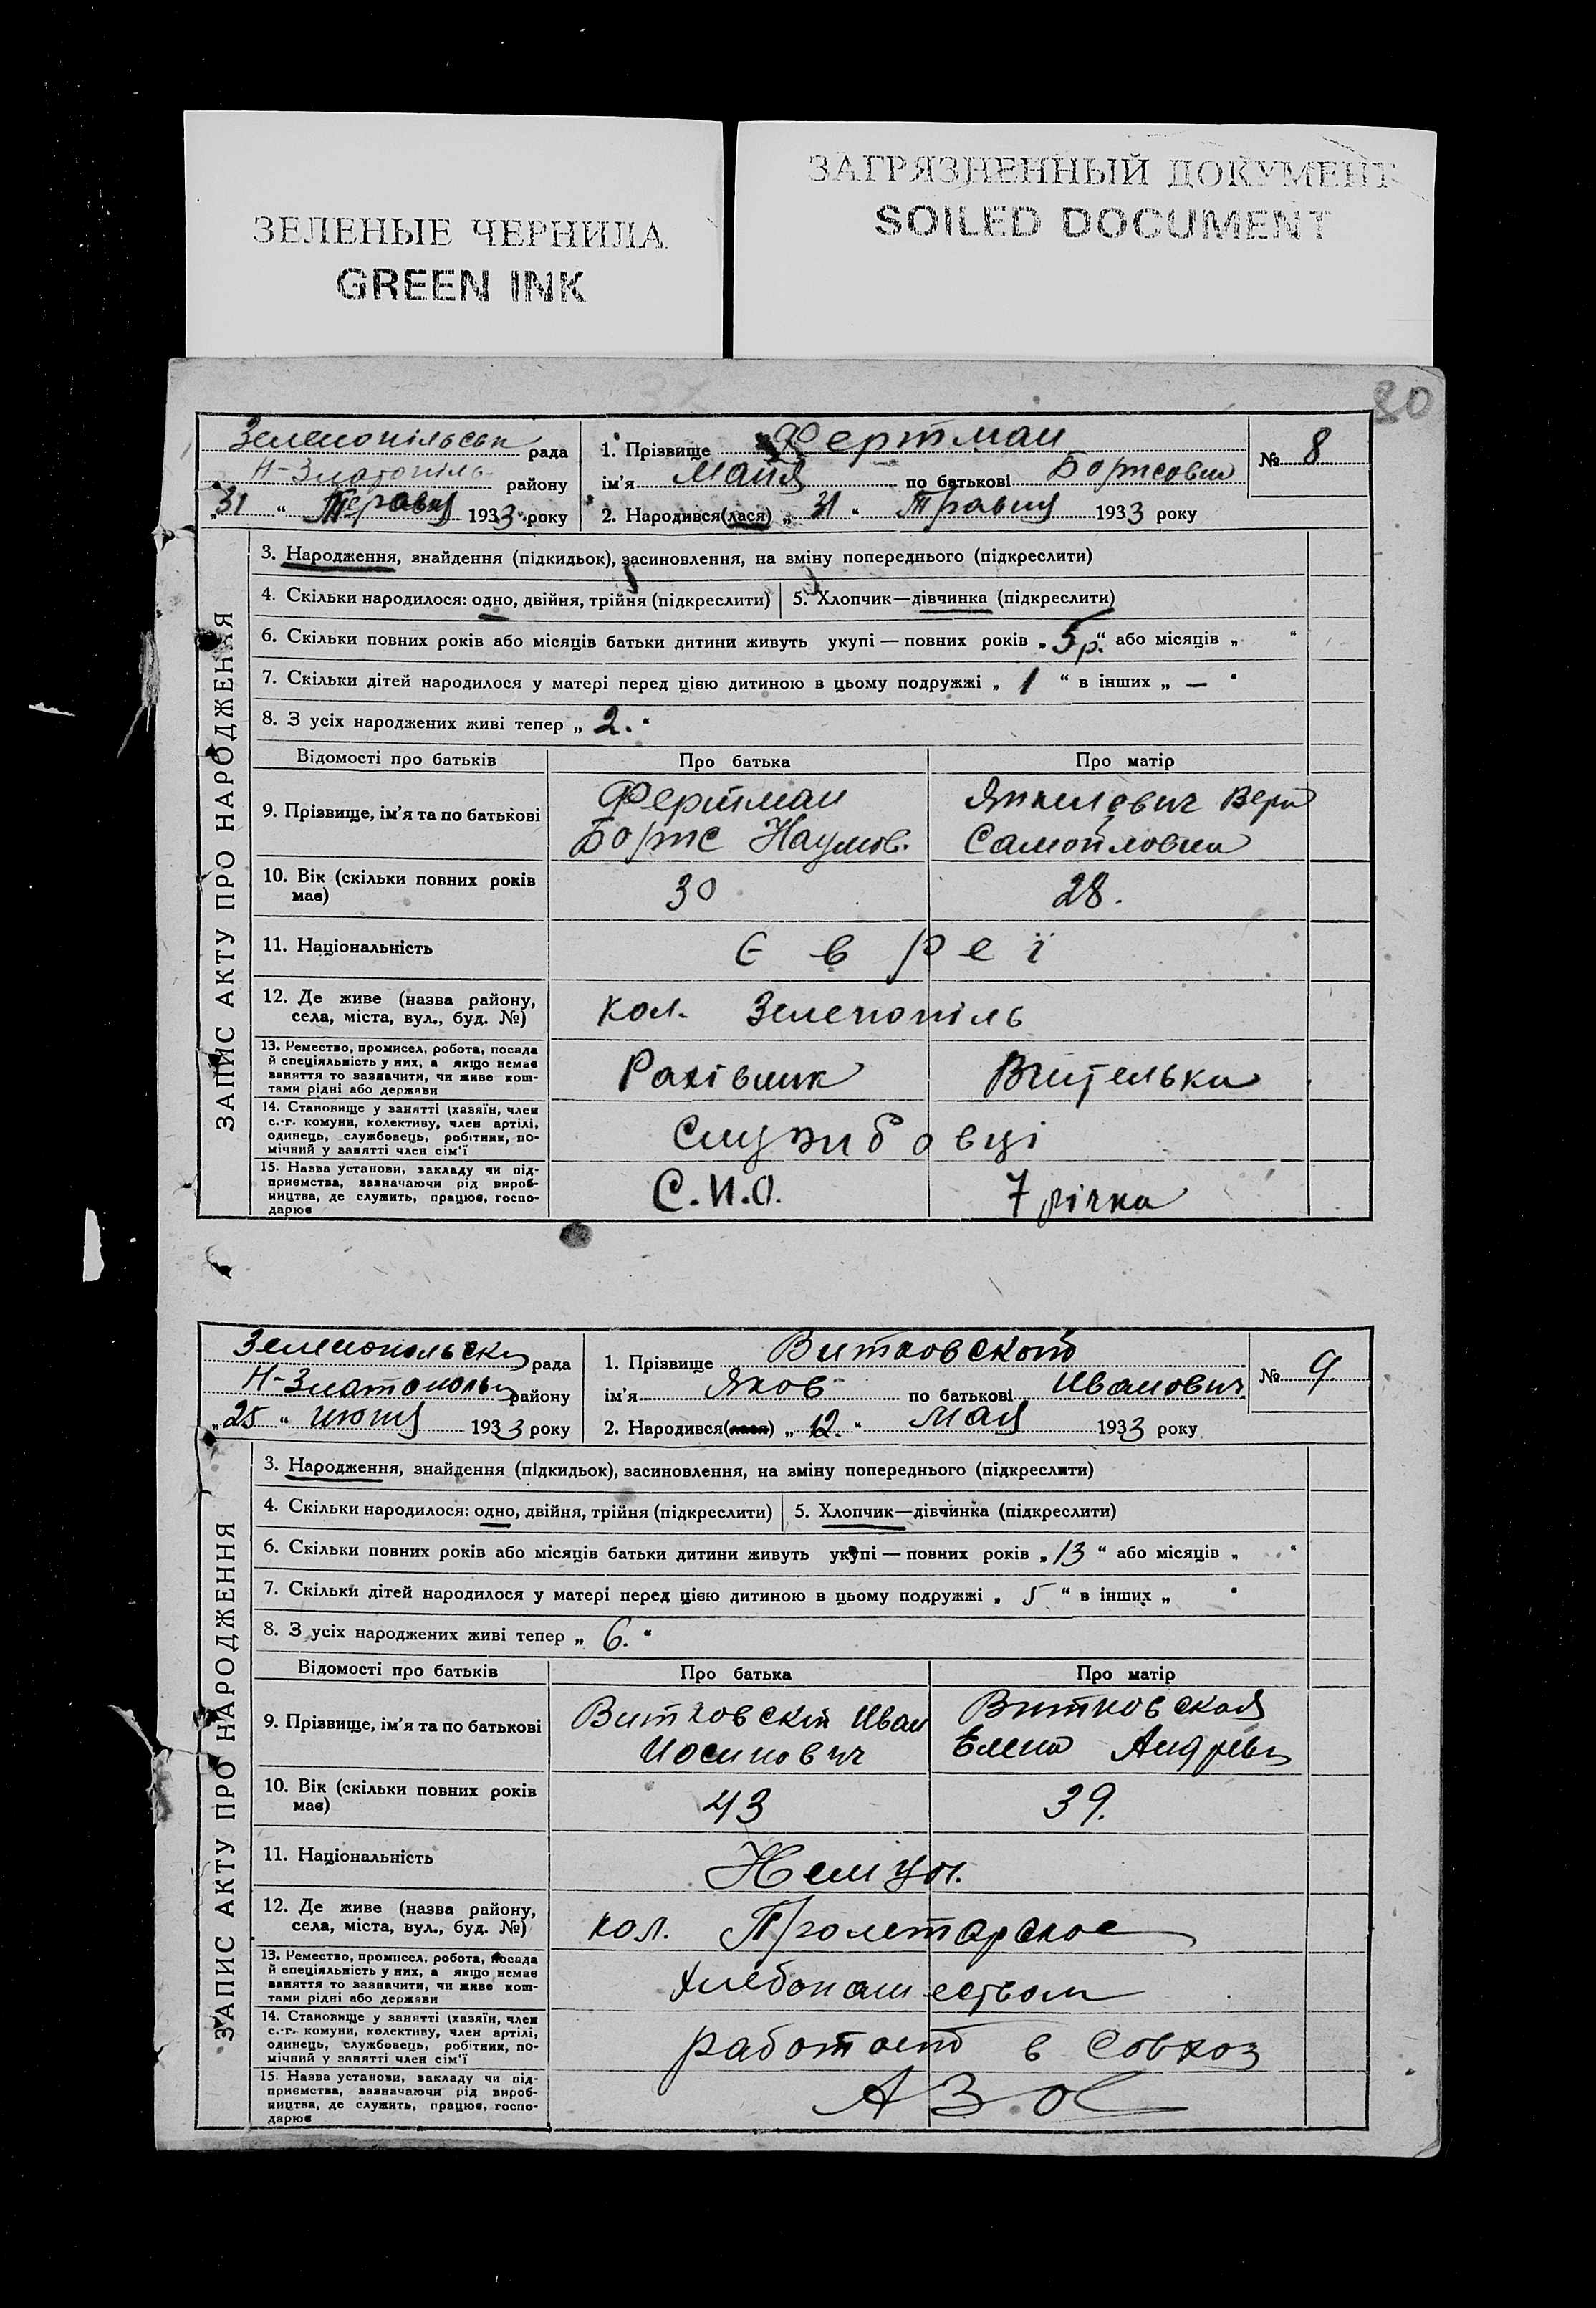 ЗЕЛЕНЫЕ ЧЕРНИЛА
GREEN INK
ЗАГРЯЗНЕННЫЙ ДОКУМЕНТ
SOILED DOCUMENT
80
Зеленопільськ рада
Н-Златопіль району
„31 “ Травня 1933 року
1. Прізвище Фертман
ім’я Майя по батькові Борисовна
2. Народився(лася) „ 31 “ Травня 1933 року
№ 8
ЗАПИС АКТУ ПРО НАРОДЖЕННЯ
3. Народження, знайдення (підкидьок), засиновлення, на зміну попереднього (підкреслити)
4. Скільки народилося: одно, двійня, трійня (підкреслити) 5. Хлопчик—дівчинка (підкреслити)
6. Скільки повних років або місяців батьки дитини живуть укупі — повних років „ 5 р. “ або місяців „ “
7. Скільки дітей народилося у матері перед цією дитиною в цьому подружжі „ 1 “ в інших „ — “
8. З усіх народжених живі тепер „ 2. “
Відомості про батьків Про батька Про матір
9. Прізвище, ім’я та по батькові
Фертман
Борис Наумов.
Янкилевич Вера
Самойловна
10. Вік (скільки повних років
має)
30 28.
11. Національність Євреї
12. Де живе (назва району,
села, міста, вул., буд. №)
кол. Зеленопіль
13. Ремество, промисел, робота, посада
й спеціяльність у них, а якщо немає
заняття то зазначити, чи живе кош-
тами рідні або держави
Рахівник Вчителька
14. Становище у занятті (хазяїн, член
с.-г. комуни, колективу, член артілі,
одинець, службовець, робітник, по-
мічний у занятті член сім’ї
Службовці
15. Назва установи, закладу чи під-
приємства, зазначаючи рід вироб-
ництва, де служить, працює, госпо-
дарює
7 річка
Зеленопольска рада
Н-Златополь району
„25 “ июня 1933 року
1. Прізвище Витковский
ім’я Яков по батькові Иванович
2. Народився(лася) „ 12. “ Мая 1933 року
№ 9.
ЗАПИС АКТУ ПРО НАРОДЖЕННЯ
3. Народження, знайдення (підкидьок), засиновлення, на зміну попереднього (підкреслити)
4. Скільки народилося: одно, двійня, трійня (підкреслити) 5. Хлопчик—дівчинка (підкреслити)
6. Скільки повних років або місяців батьки дитини живуть укупі — повних років „ 13 “ або місяців „ “
7. Скільки дітей народилося у матері перед цією дитиною в цьому подружжі „ 5 “ в інших „ “
8. З усіх народжених живі тепер „ 6. “
Відомості про батьків Про батька Про матір
9. Прізвище, ім’я та по батькові
Витковскій Иван
Иосипович
Витковская
Елена Андревн
10. Вік (скільки повних років
має)
43 39.
11. Національність Немцы.
12. Де живе (назва району,
села, міста, вул., буд. №)
кол. Пролетарское
13. Ремество, промисел, робота, посада
й спеціяльність у них, а якщо немає
заняття то зазначити, чи живе кош-
тами рідні або держави
хлебопашеством
14. Становище у занятті (хазяїн, член
с.-г. комуни, колективу, член артілі,
одинець, службовець, робітник, по-
мічний у занятті член сім’ї
работает в Совхоз
15. Назва установи, закладу чи під-
приємства, зазначаючи рід вироб-
ництва, де служить, працює, госпо-
дарює